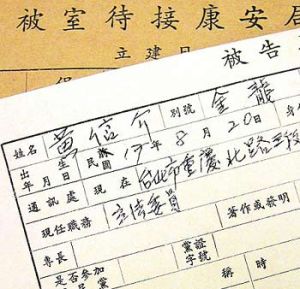 被室待接康安局
立建日
被告
姓名 黃信介 別號 金龍
出生年月日 民國 17年8月20日
通訊處 現在 台北市重慶北路三段
現任職務 立法委員 著作或發明
專長 黨證字號
是否參加 黨 稱 時